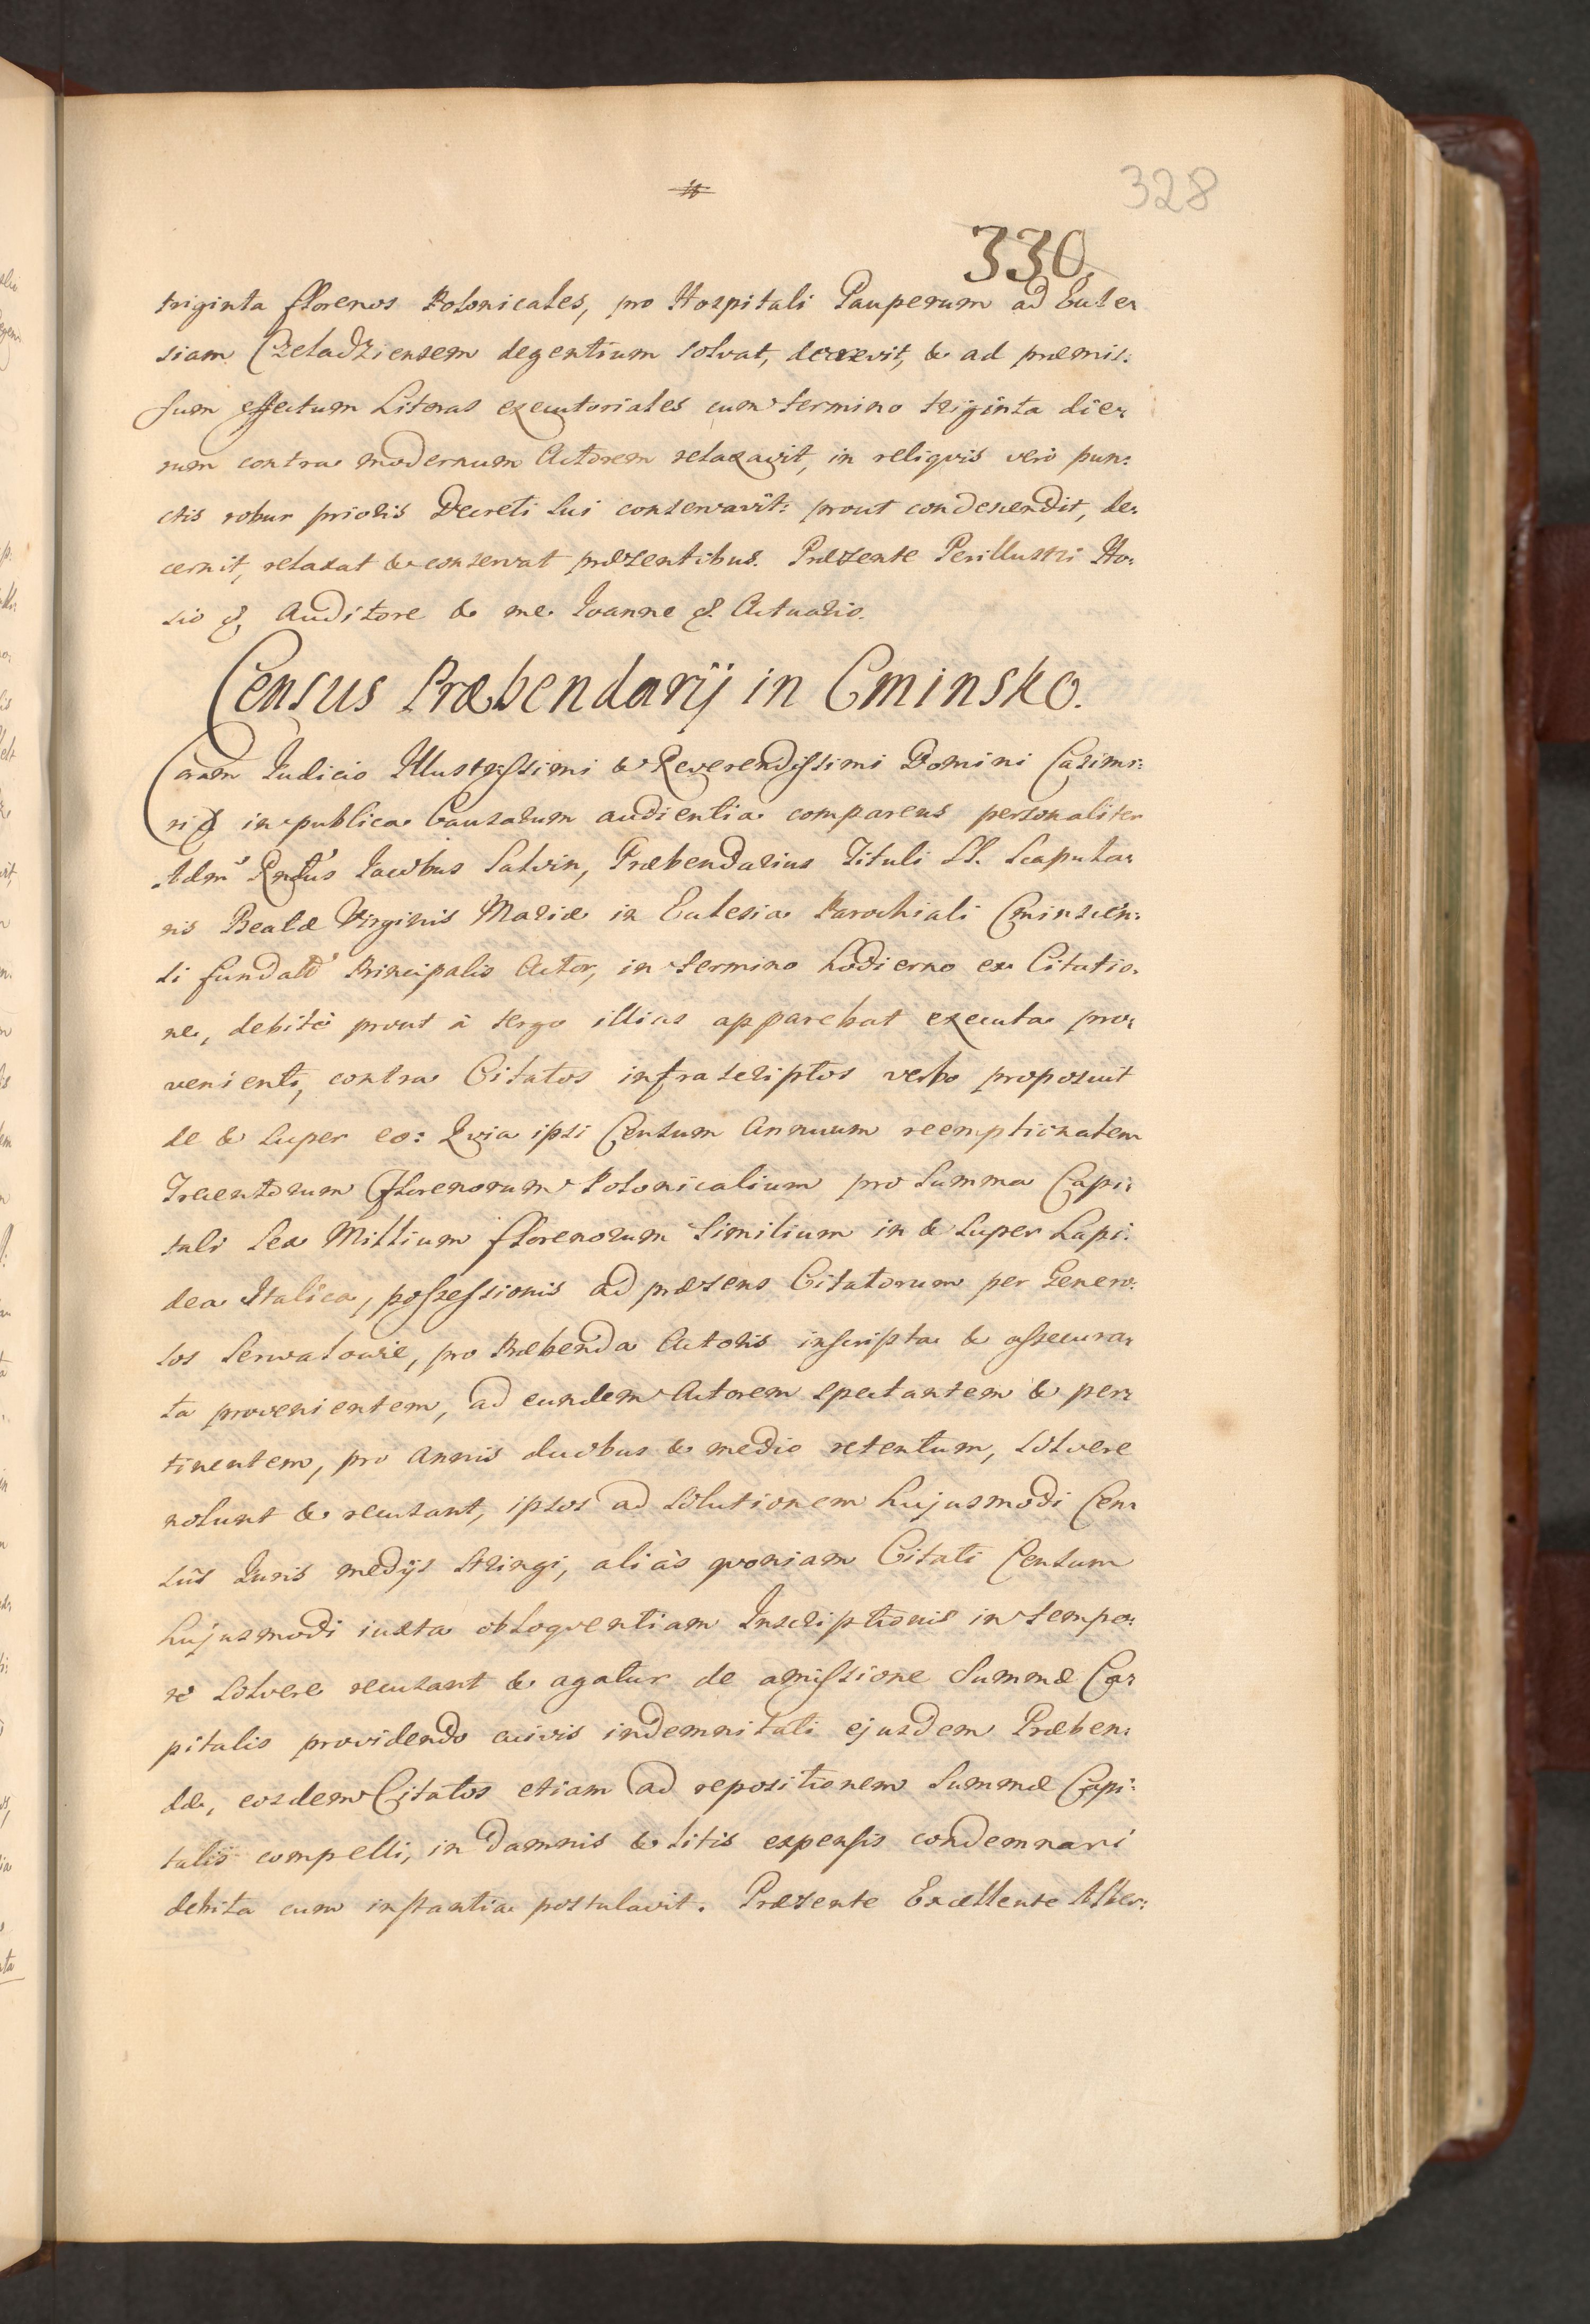 328
330.
triginta florenos Polonicales, pro Hospitali Pauperum ad Eccle:
siam Czeladziensem degentium solvat, decrevit, & ad præmis:
sum effectum Literas executoriales cum termino triginta die:
rum contra modernum Actorem relaxavit, in reliqvis verò pun:
ctis robur prioris Decreti sui conservavit: prout condescendit, de:
cernit, relaxat & conservat præsentibus. Præsente Perillustri Ho:
sio &. Auditore & me Joanne &. Actuario.
Census Præbendarij in Cminsko.
Coram Judicio Illustrissimi & Reverendissimi Domini Casimi:
ri & in publica Causarum audientia comparens personaliter
Adm Rndus Jacobus Salvin, Præbendarius Tituli SS. Scapula:
ris Beatæ Virginis Mariæ in Ecclesia Parochiali Cminscen:
si fundatæ Principalis Actor, in termino hodierno ex Citatio:
ne, debitè prout à tergo illius apparebat executa pro:
venienti, contra Citatos infrascriptos verbo proposuit
de & super eo: Qvia ipsi Censum Annuum reemptionalem
Trecentorum florenorum Polonicalium pro Summa Capi:
tali Sex Millium florenorum similium in & super Lapi:
dea Italica, possessionis ad præsens Citatorum per Genero:
sos Serwatowie, pro Præbenda Actoris inscripta & assecura:
ta provenientem, ad eundem Actorem spectantem & per:
tinentem, pro Annis duobus & medio retentum, solvere
nolunt & recusant, ipsos ad solutionem hujusmodi Cen:
sûs Juris medijs stringi, aliàs qvoniam Citati Censum
hujusmodi iuxta obloqventiam Inscriptionis in tempo:
re solvere recusant & agatur de amissione Summæ Ca:
pitalis providendo cuivis indemnitati ejusdem Præben:
dæ, eosdem Citatos etiam ad repositionem Summæ Capi:
talis compelli, in damnis & litis expensis condemnari
debita cum instantia postulavit. Præsente Excellente Alber: